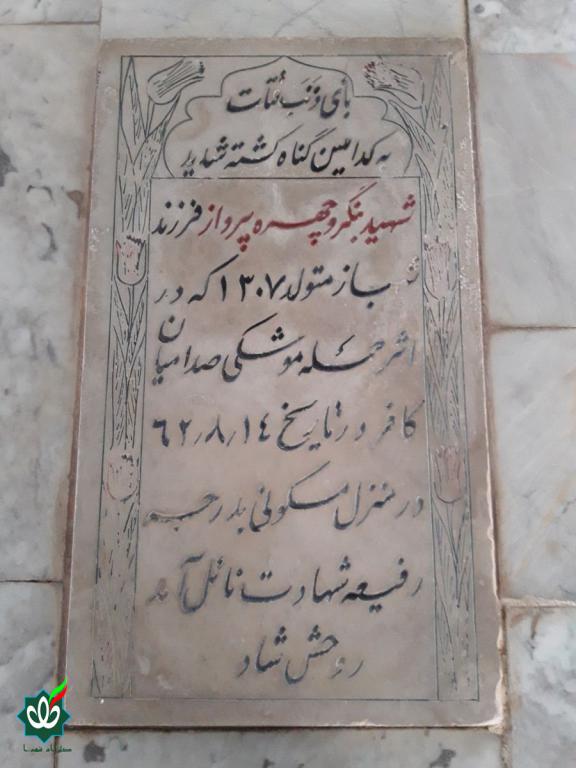 بأی ذنب قتلت
به کدامین گناه کشته شدید
شهید بنگرو چهره پرواز فرزند
شهباز متولد ۱۳۰۷ که در
اثر حمله موشکی صدامیان
کافر در تاریخ ۶۲٫۸٫۱٤
در منزل مسکونی بدرجه
رفیعه شهادت نائل آمد
روحش شاد